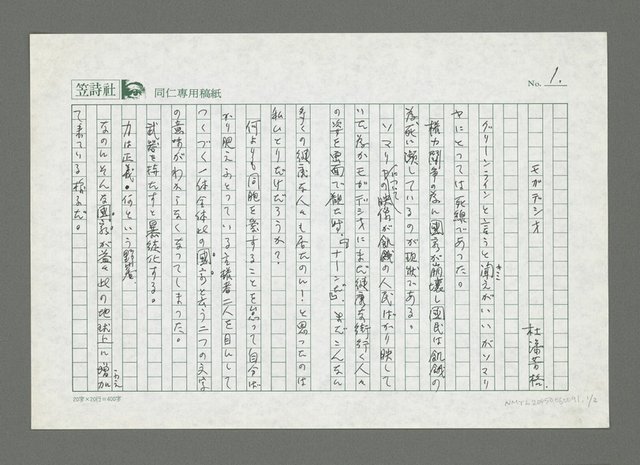 笠詩社
同仁専用稿紙
No. 1.
モガデシオ
杜潘芳格
グリーンラインと言うと聞えがいいがソマリ
ヤにとっては死線であった。
権力闘争の為、国家が崩壊し国民は飢餓の
為死に瀕しているのが現状である。
ソマリヤの映像が飢餓の人民ばかり映して
いた為かモガデシオにまだ健康な街行く人々
の姿を画面で観た時、ナーンだ、まだこんなに
多くの健康な人々も居たのん！と思ったのは
私ひとりだけだろうか？
何よりも同胞を愛することを怠って自分は
かり肥えふとっている主積者二人を目にして
つくづく一体全体此の国家と云う二つの文字
の意味がわからなくなってしまった。
武器を持たすと暴徒化する。
力は正義。何という野蛮
なのんそんな国家が益々此の地球上に増加
て来ている様子だ。
20字×20行=400字
1/2